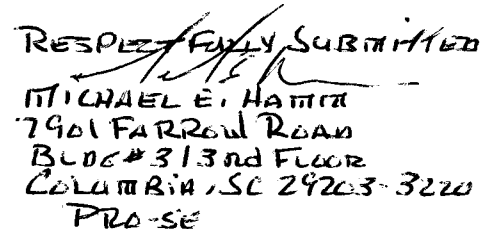 RESPECTFULLY SUBMITTED
MICHAEL E. HAMM
7901 FARROW ROAD
BLDG #3 / 3rd FLOOR
COLUMBIA, SC 29203-3220
PRO-SE